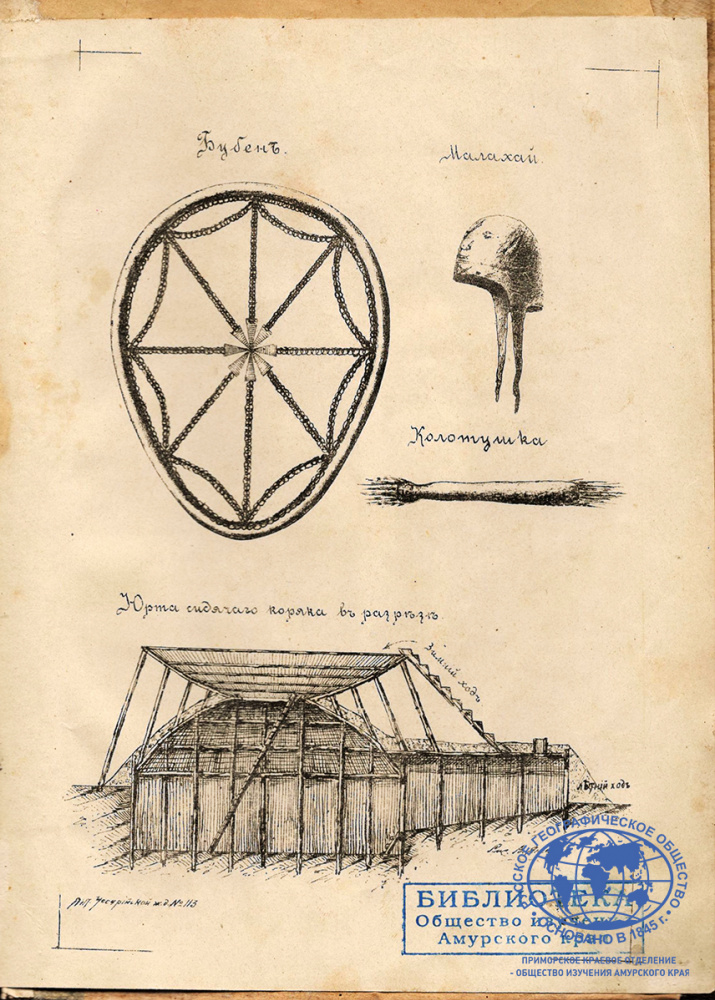 Бубенъ.
Малахай.
Колотушка
Юрта сидячаго коряка въ разрѣзѣ
Зимній ходъ
лѣтній ходъ
Лит. Уссурійской ж.д № 113
БИБЛИОТЕКА
Общество изучен
Амурского края
РУССКОЕ ГЕОГРАФИЧЕСКОЕ ОБЩЕСТВО
• ОСНОВАНО В 1845 г. •
ПРИМОРСКОЕ КРАЕВОЕ ОТДЕЛЕНИЕ
- ОБЩЕСТВО ИЗУЧЕНИЯ АМУРСКОГО КРАЯ